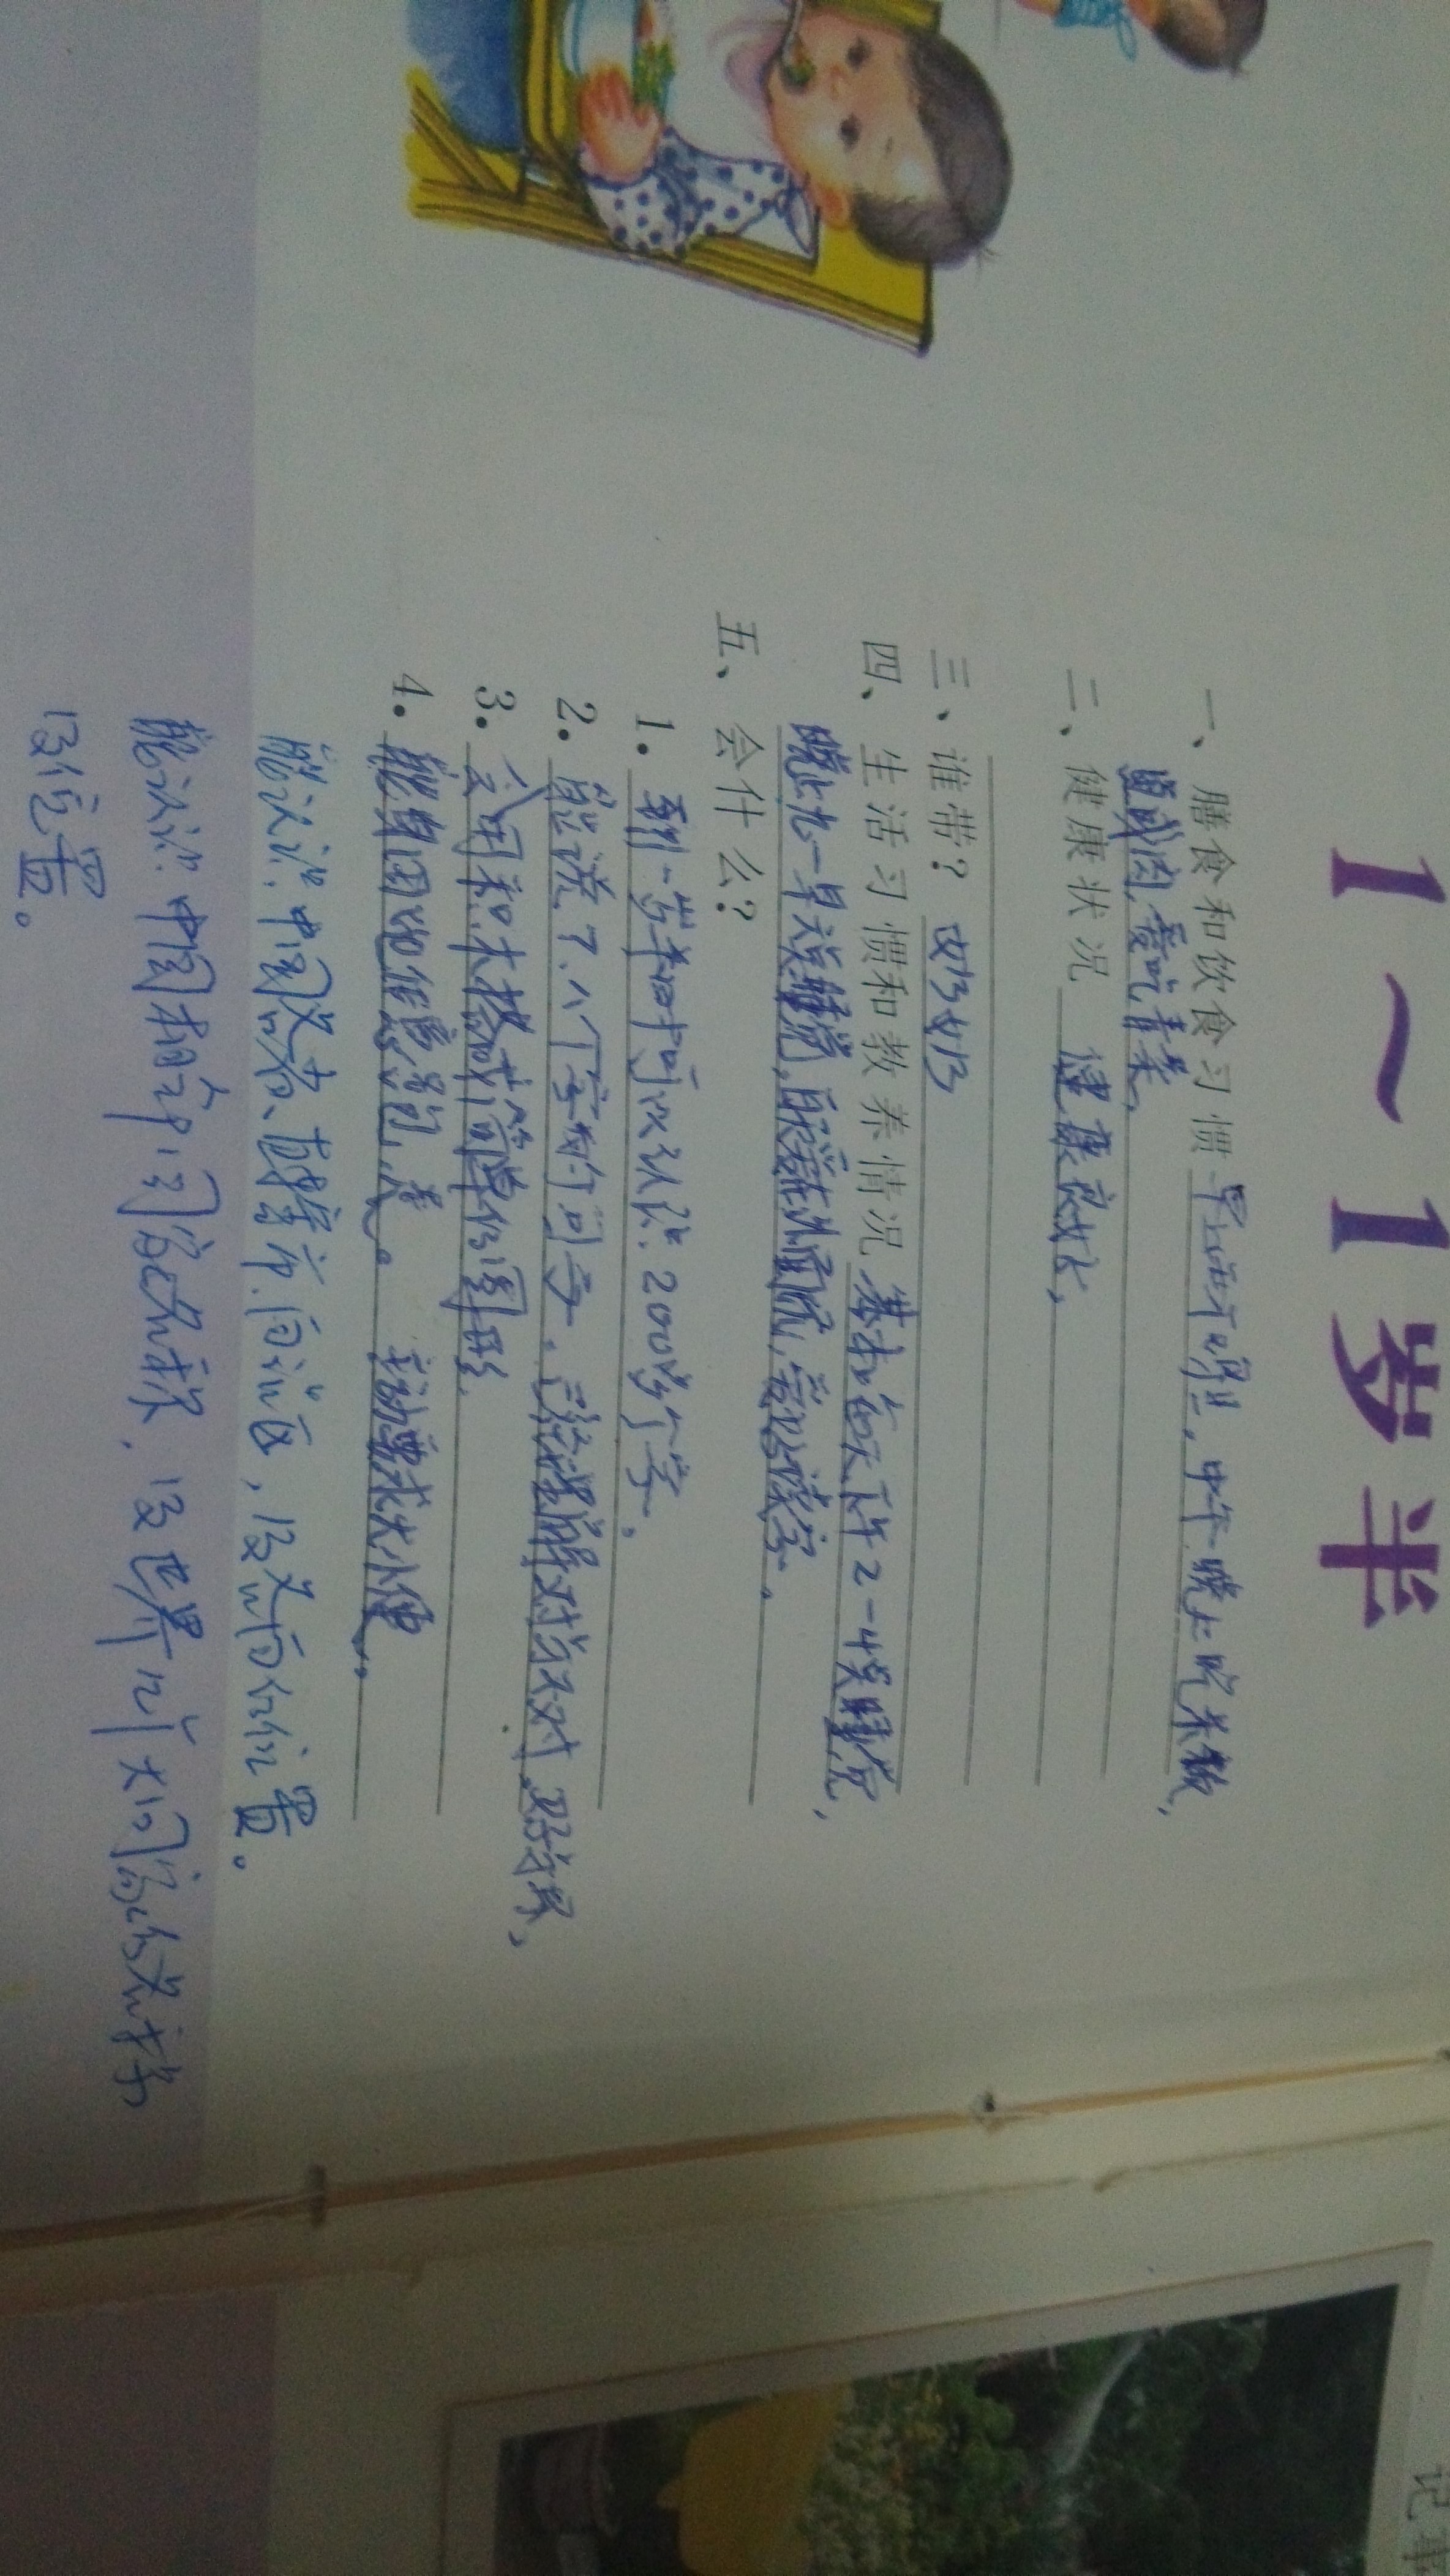 1～1岁半
记事
一、膳食和饮食习惯 早上西干鸡旦，中午晚上吃米饭，
鱼或肉，爱吃青菜，
二、健康状况 健康良好，
三、谁带？奶奶
四、生活习惯和教养情况 基本上每天下午2-4点睡觉，
晚上九一早六点睡觉，白天爱在外面玩，爱好读字。
五、会什么？
1. 到一岁半时可以认识200多个字，
2. 能说7、八个字的句子。已经理解对与不对，好与坏，
3. 会用积木搭成简单的图形，
4. 能自由地任意跑，走。 主动要求大小便。
能认识中国各省、直辖市、自治区，及各自的位置。
能认识中国相邻国家名称，及世界几个大国家的名称
及位置。